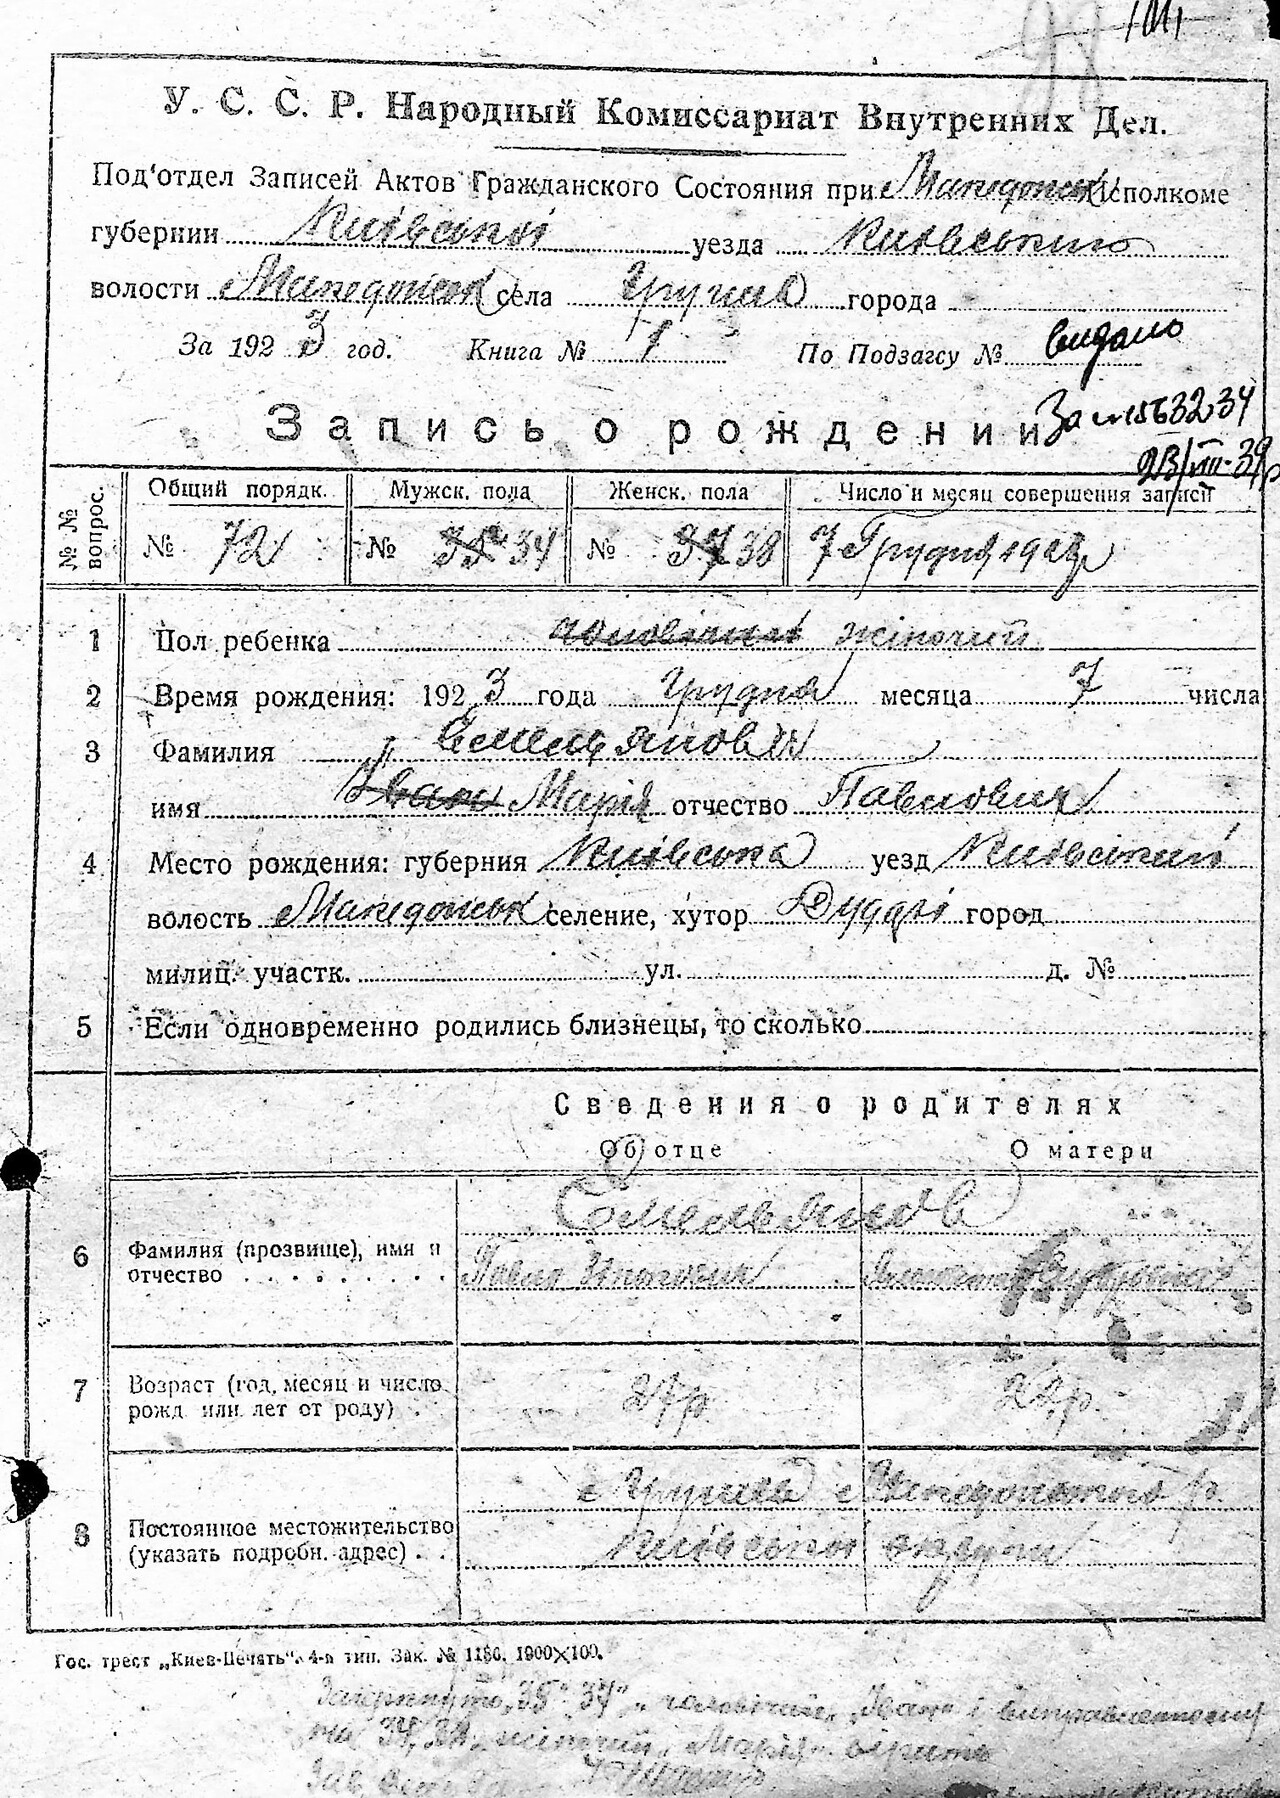 У. С. С. Р. Народный Комиссариат Внутренних Дел.
Под'отдел Записей Актов Гражданского Состояния при Македонськ Исполкоме
губернии Київської уезда Київського
волости Македонськ села города
За 1923 год. Книга № 1 По Подзагсу № видано
За № 15632,34
23/III-39р
Запись о рождении
№ № вопрос. Общий порядк. Мужск. пола Женск. пола Число и месяц совершения записи
№ 72 № 35 34 № 37 38 7 Грудня 1923р
1 Пол ребенка чоловічий жіночий
2 Время рождения: 1923 года Грудня месяца 7 числа
3 Фамилия Емельянов
имя Іван Марія отчество Павлович
4 Место рождения: губерния Київська уезд Київський
волость Македонськ селение, хутор Дудари город
милиц. участк. ул. д. №
5 Если одновременно родились близнецы, то сколько
Сведения о родителях
Об отце О матери
Емельянов
6 Фамилия (прозвище), имя и
отчество Павло
7 Возраст (год, месяц и число
рожд. или лет от роду) 27р. 22р.
8 Постоянное местожительство
(указать подробн. адрес)
с Македонського р.
Київської округи
Гос. трест „Киев-Печать". 4-я тип. Зак. № 1180. 1000×100.
Закреслуто „35" 37", чоловічий, „Іван" і
на 34, 38, жіночий, „Марія" вірить
Зав.